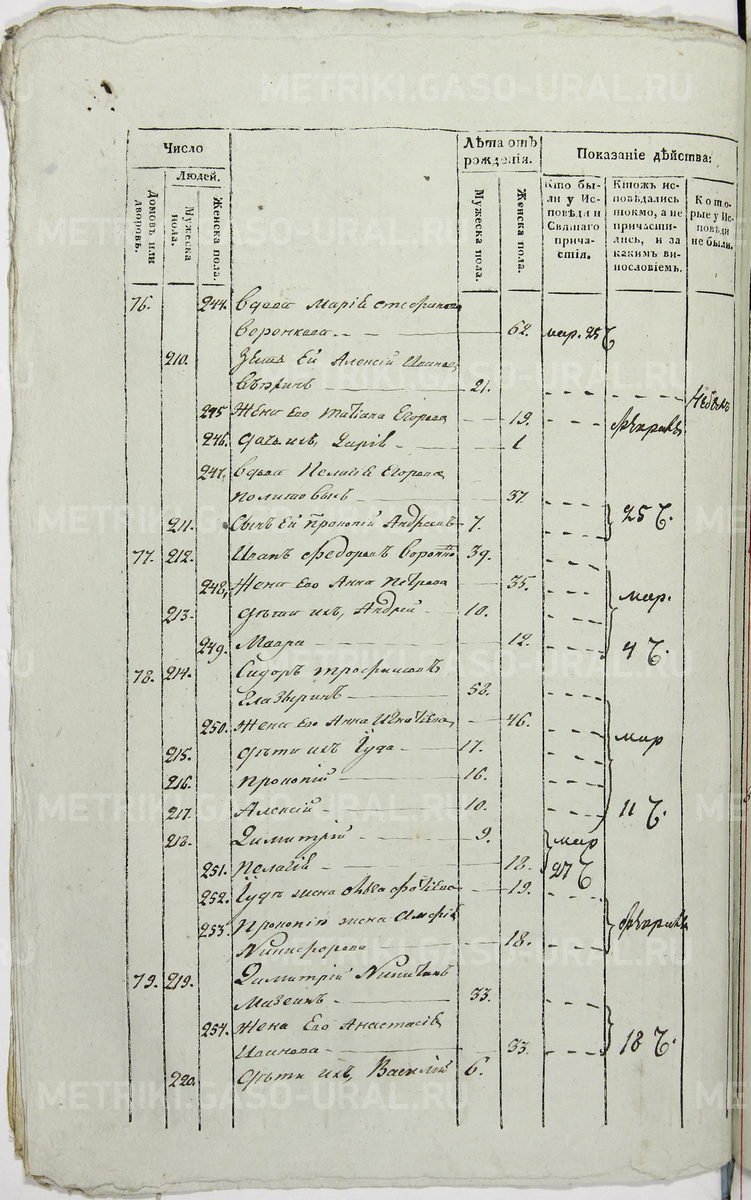 METRIKI.GASO-URAL.RU
Число
Людей.
Домовъ или дворовъ.
Мужеска пола.
Женска пола.
Лѣта отъ рожденія.
Мужеска пола.
Женска пола.
Показаніе дѣйства:
Кто были у Исповѣди и Святаго причастія.
Ктожъ исповѣдались токмо, а не причастились, и за какимъ винословіемъ.
Которые у Исповѣди не были.
76. 244. Вдова Марія
62. мар. 25 Ч
210. Зять Ея Алексій
21. Небылъ
245 Жена Его Татіана Егорова 19.
246. Дочь ихъ, Дарія 1
247. Вдова Пелагія Егорова
37.
211. Сынъ Ея Прокопій Андреевъ 7. 25 Ч.
77. 212. Иванъ Федоровъ 39.
248. Жена Его Анна Петрова 35. мар.
213. Дѣти ихъ, Андрей 10.
249. Мавра 12. 4 Ч.
78. 214. Сидоръ Трофимовъ
Глазыринъ 58.
250. Жена Его Анна Игнатіева 46. мар
215. Дѣти ихъ Іуда 17.
216. Прокопій 16.
217. Алексій 10. 11 Ч.
218. Димитрій 9. мар
251. Пелагія 18. 27 Ч
252. Іуды жена 19.
253. Прокопія жена
Никифорова 18.
79. 219. Димитрій Никитинъ
33.
254. Жена Его Анастасія
Иванова 33. 18 Ч.
220. Дѣти ихъ, Василій 6.